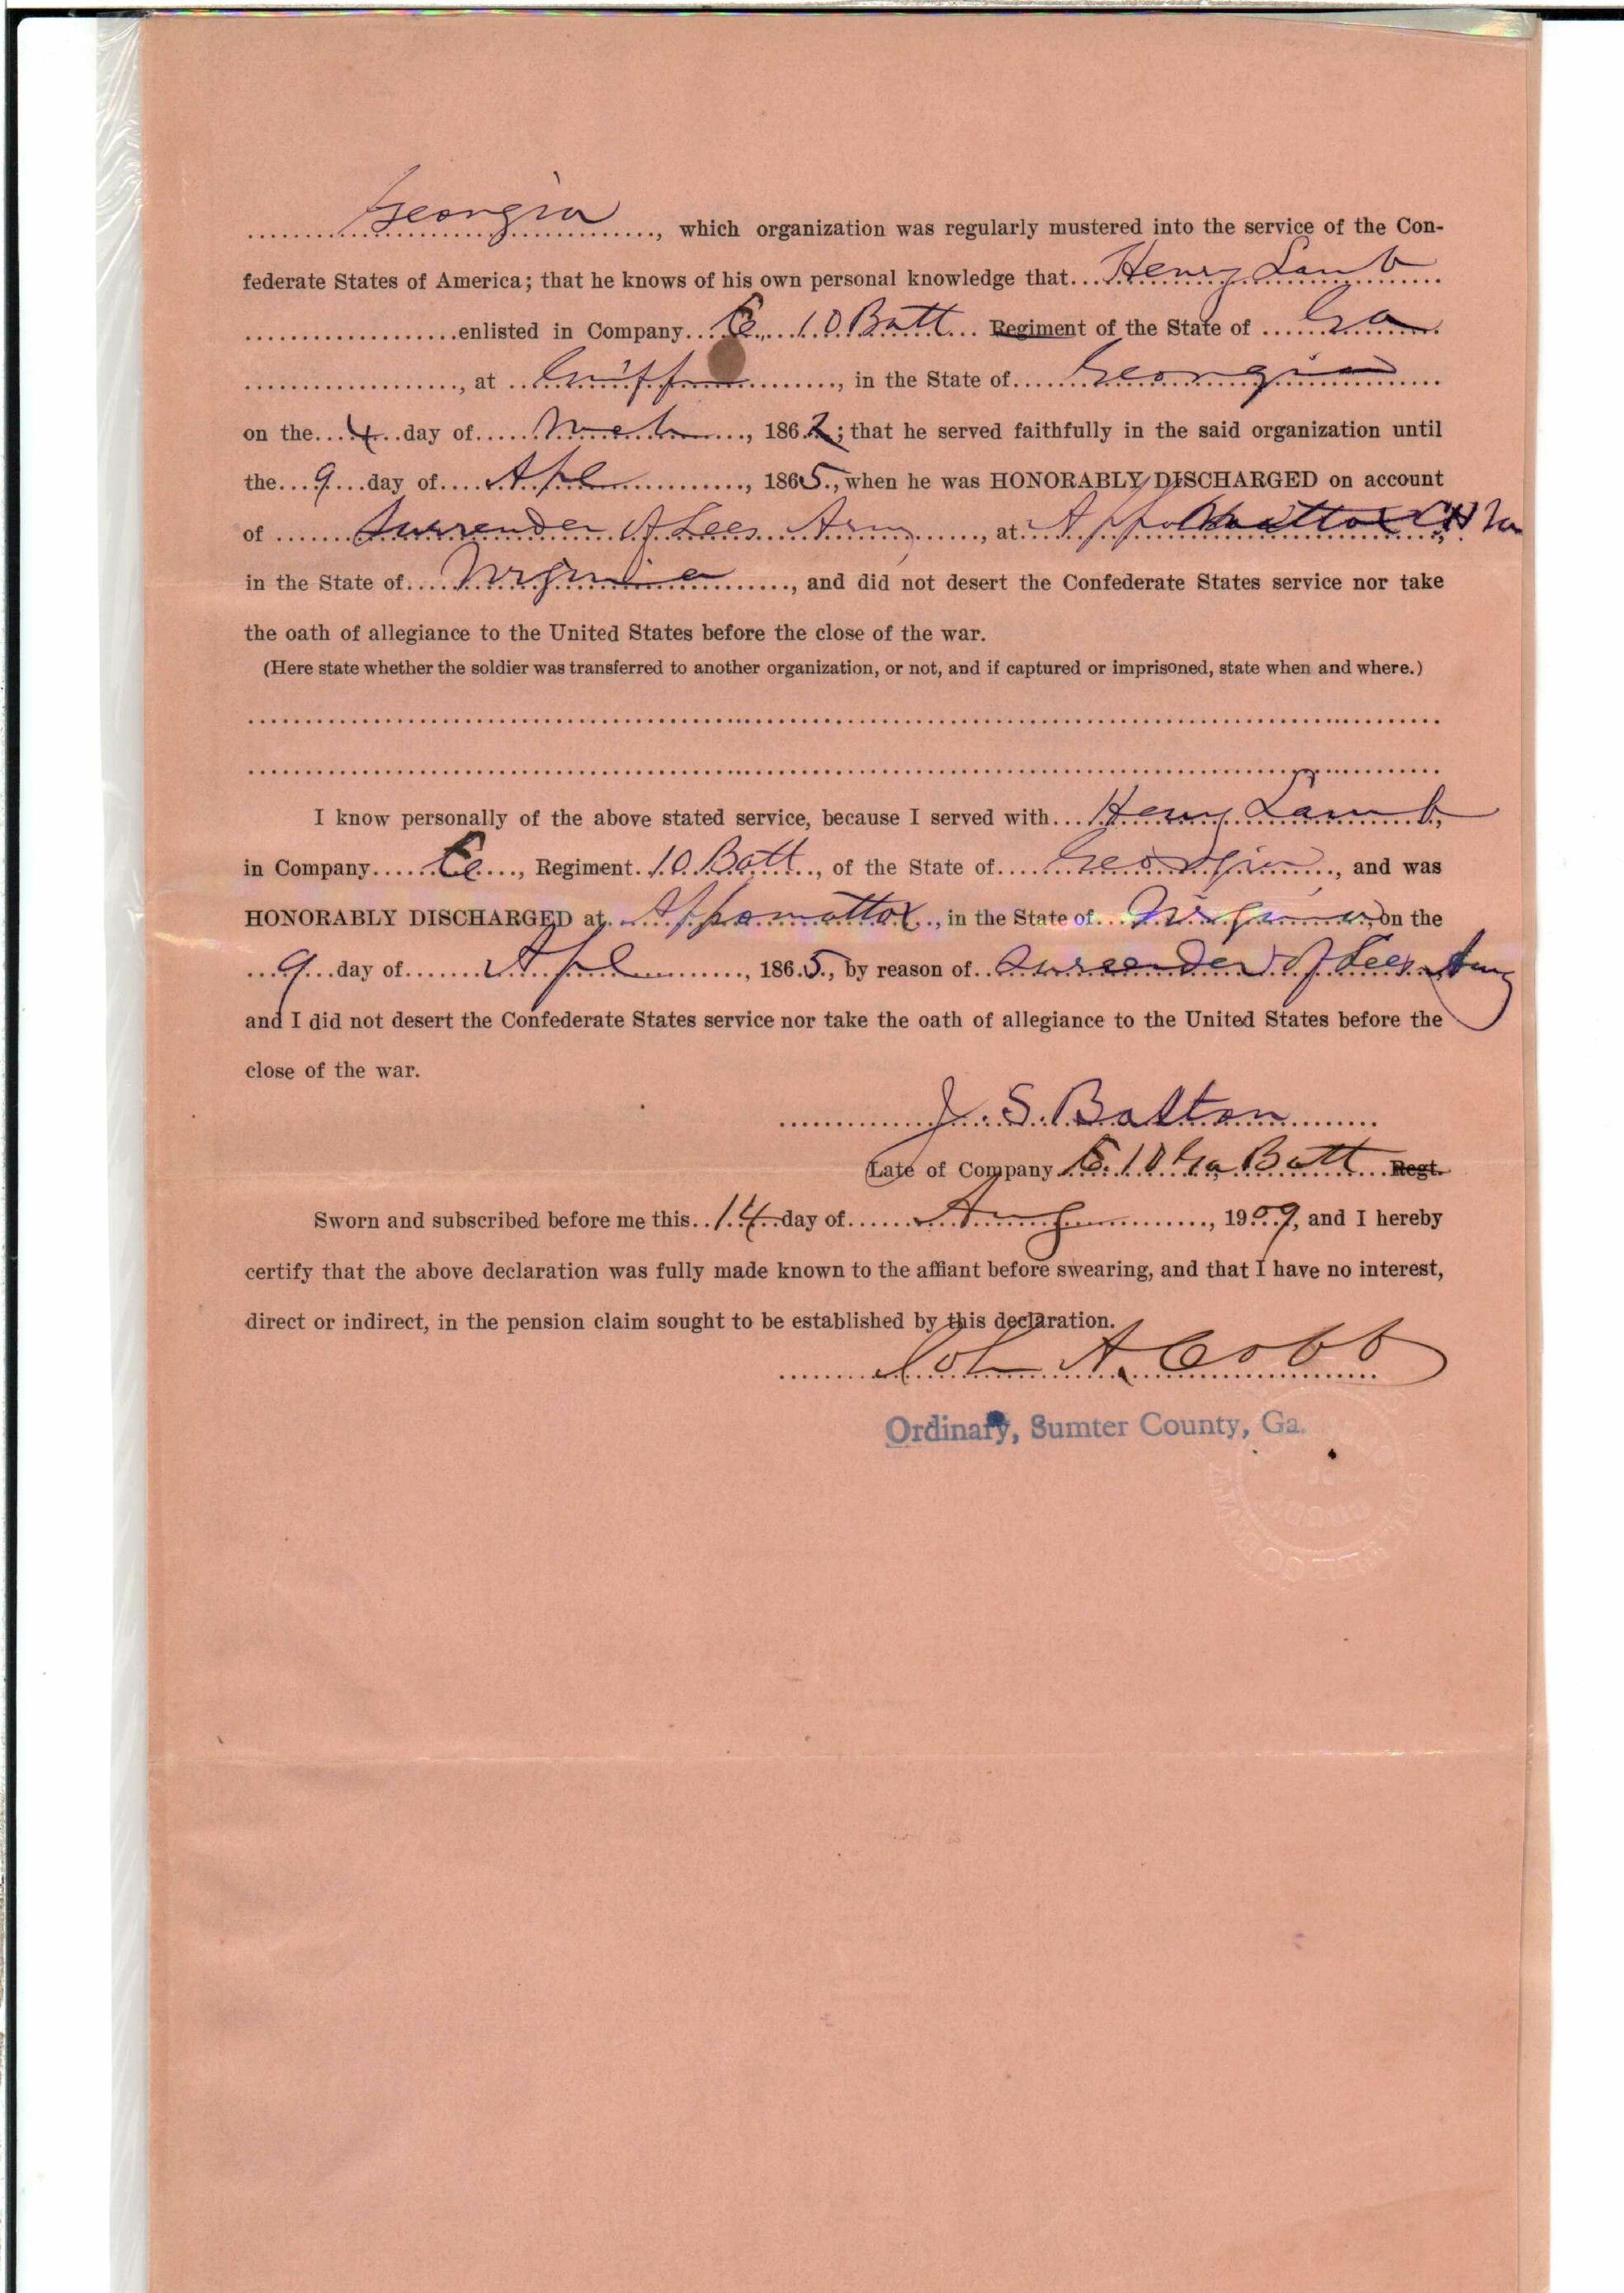 Georgia, which organization was regularly mustered into the service of the Con-
federate States of America; that he knows of his own personal knowledge that Henry Lamb
enlisted in Company E 10 Batt Regiment of the State of Ga
, at Griffin, in the State of Georgia
on the 4 day of Mch, 1862; that he served faithfully in the said organization until
the 9 day of Apl, 1865, when he was HONORABLY DISCHARGED on account
of Surrender of Lees Army, at Appomattox CH Va
in the State of Virginia, and did not desert the Confederate States service nor take
the oath of allegiance to the United States before the close of the war.
(Here state whether the soldier was transferred to another organization, or not, and if captured or imprisoned, state when and where.)
I know personally of the above stated service, because I served with Henry Lamb,
in Company E, Regiment 10 Batt, of the State of Georgia, and was
HONORABLY DISCHARGED at Appomattox, in the State of Virginia, on the
9 day of Apl, 1865, by reason of Surrender of Lees Army
and I did not desert the Confederate States service nor take the oath of allegiance to the United States before the
close of the war.
J. S. Batton
Late of Company E. 10 Ga Batt Regt.
Sworn and subscribed before me this 14 day of Aug, 1909, and I hereby
certify that the above declaration was fully made known to the affiant before swearing, and that I have no interest,
direct or indirect, in the pension claim sought to be established by this declaration.
John A. Cobb
Ordinary, Sumter County, Ga.